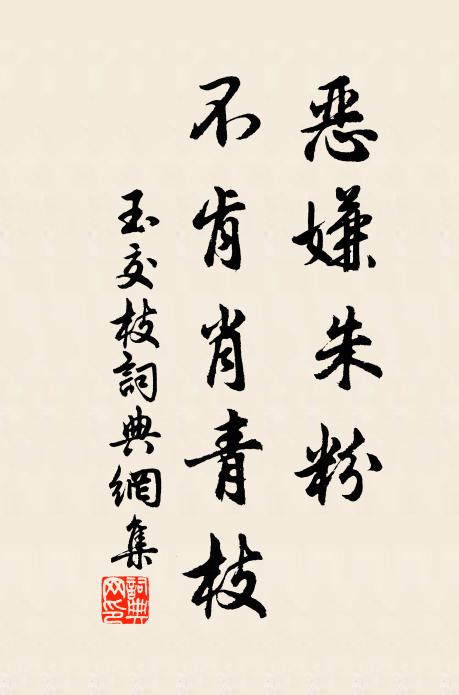 惡嫌朱粉
不肯肖青枝
玉交枝詞典網集
詞典网印